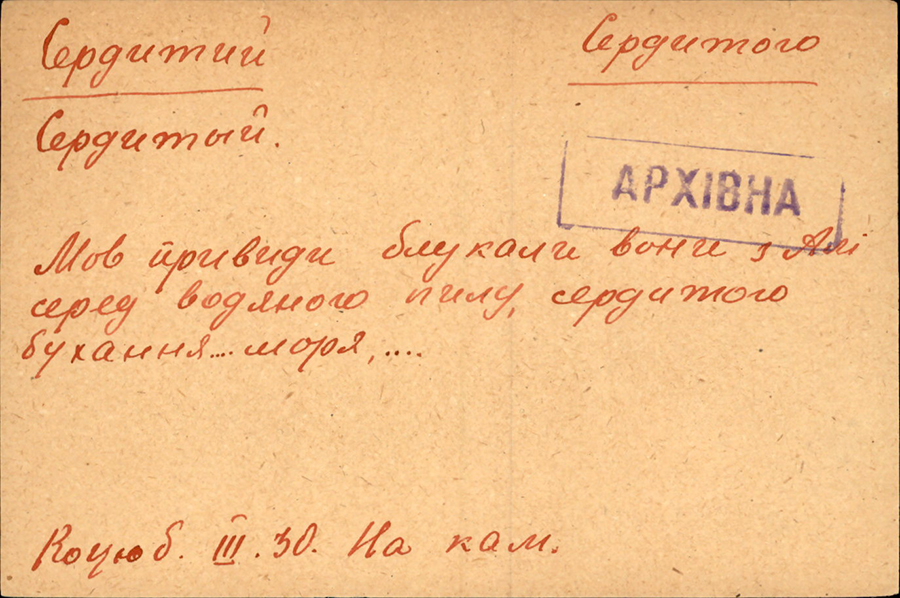 Сердитий
Сердитого
Сердитый.
АРХІВНА
Мов привиди блукали вони з Алі
серед водяного пилу, сердитого
бухання.... моря, ....
Коцюб. III. 30. На кам.